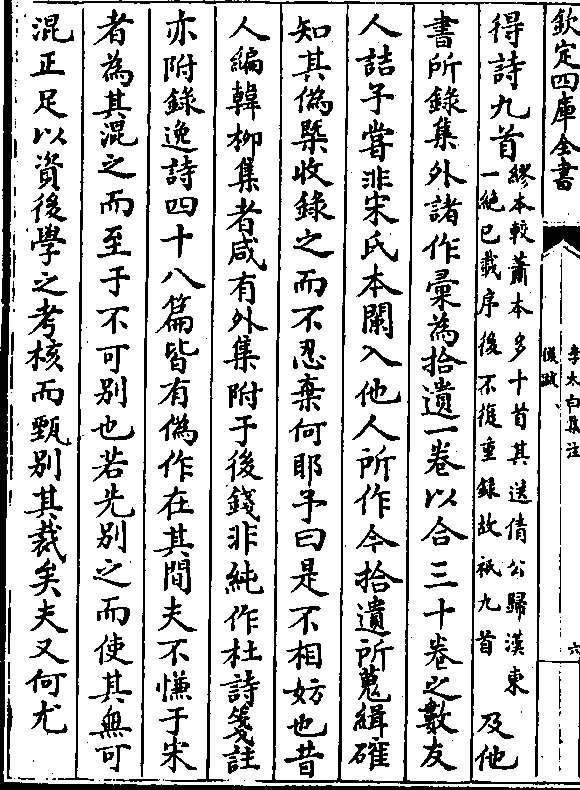 欽定四庫全書
李太白集注
後跋
六
得詩九首繆本較蕭本多十首其送倩公歸漢東一絶已載序後不復重録故祇九首及他
書所錄集外諸作彚為拾遺一卷以合三十卷之數友
人詰予嘗非宋氏本闌入他人所作今拾遺所蒐緝確
知其偽槩收錄之而不忍棄何耶予曰是不相妨也昔
人編韓柳集者咸有外集附于後錢非純作杜詩箋註
亦附錄逸詩四十八篇皆有偽作在其間夫不慊于宋
者為其混之而至于不可別也若先別之而使其無可
混正足以資後學之考核而甄別其裁矣夫又何尤